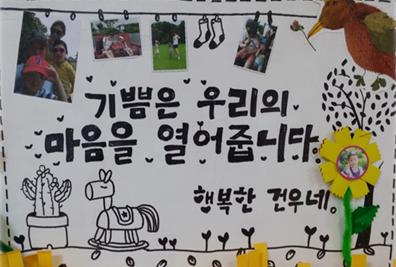 기쁨은 우리의
마음을 열어줍니다.
행복한 건우네.